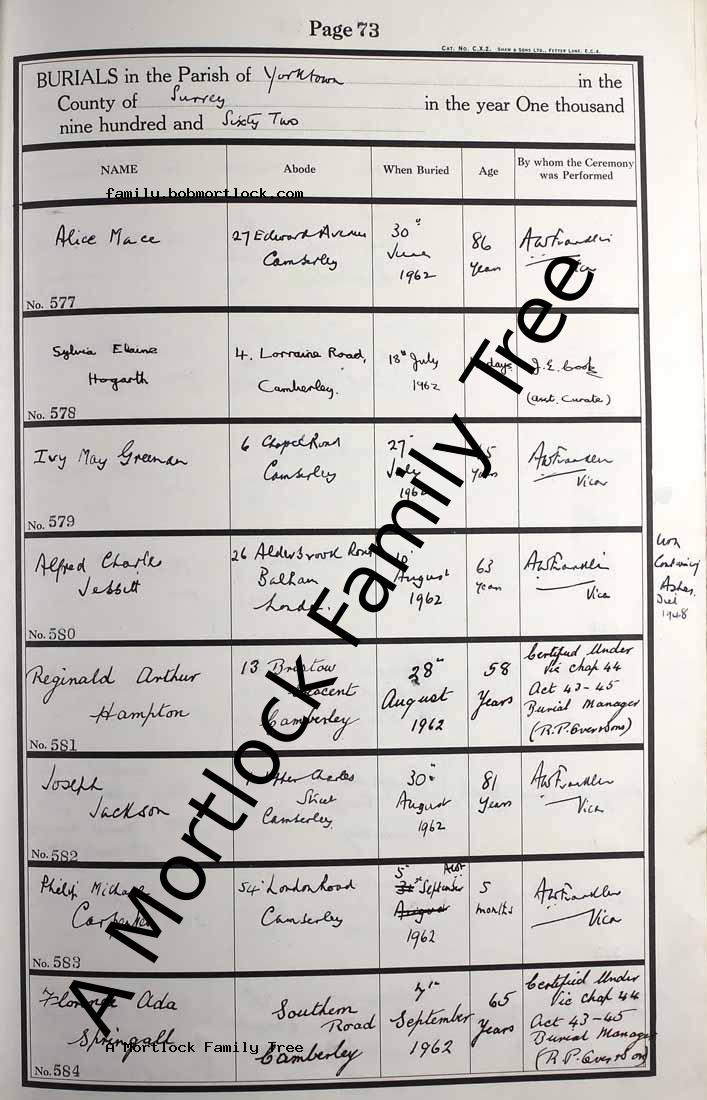 Page 73
CAT. NO. C.X.2. SHAW & SONS LTD., FETTER LANE, E.C.4.
BURIALS in the Parish of Yorktown in the
County of Surrey in the year One thousand
nine hundred and Sixty Two
NAME Abode When Buried Age By whom the Ceremony
was Performed
family.bobmortlock.com
Alice Mace 27 Edward Avenue 30" 86 AWFranklin
Camberley June Years Vicar
1962
No. 577
Sylvia Elaine 4. Lorraine Road, 18th July days J.E. Cook
Hogarth Camberley. 1962 (asst. Curate)
No. 578
Ivy May 6 Chapel Road 27" AWFranklin
Camberley July Years Vicar
1962
No. 579
Alfred Charles 26 Road 63 AWFranklin
Jebbett Balham August Years Vicar
London. 1962
Urn
Containing
Ashes.
Died
1948
No. 580
Reginald Arthur 13 Bristow 28" 58 Certified Under
Hampton Crescent August Years Vic Chap 44
Camberley 1962 Act 43-45
Burial Manager
(R.P. Eversons)
No. 581
Joseph Charles 30" 81 AWFranklin
Jackson Street August Years Vicar
Camberley. 1962
No. 582
Philip Michael 54 London Road 5" AWF 5 AWFranklin
Carpenter Camberley 31st September months Vicar
August
1962
No. 583
Florence Ada Southern 7th 65 Certified Under
Springall Road September Years Vic Chap 44
Camberley 1962 Act 43-45
Burial Manager
(R.P. Everson)
No. 584
A Mortlock Family Tree
A Mortlock Family Tree